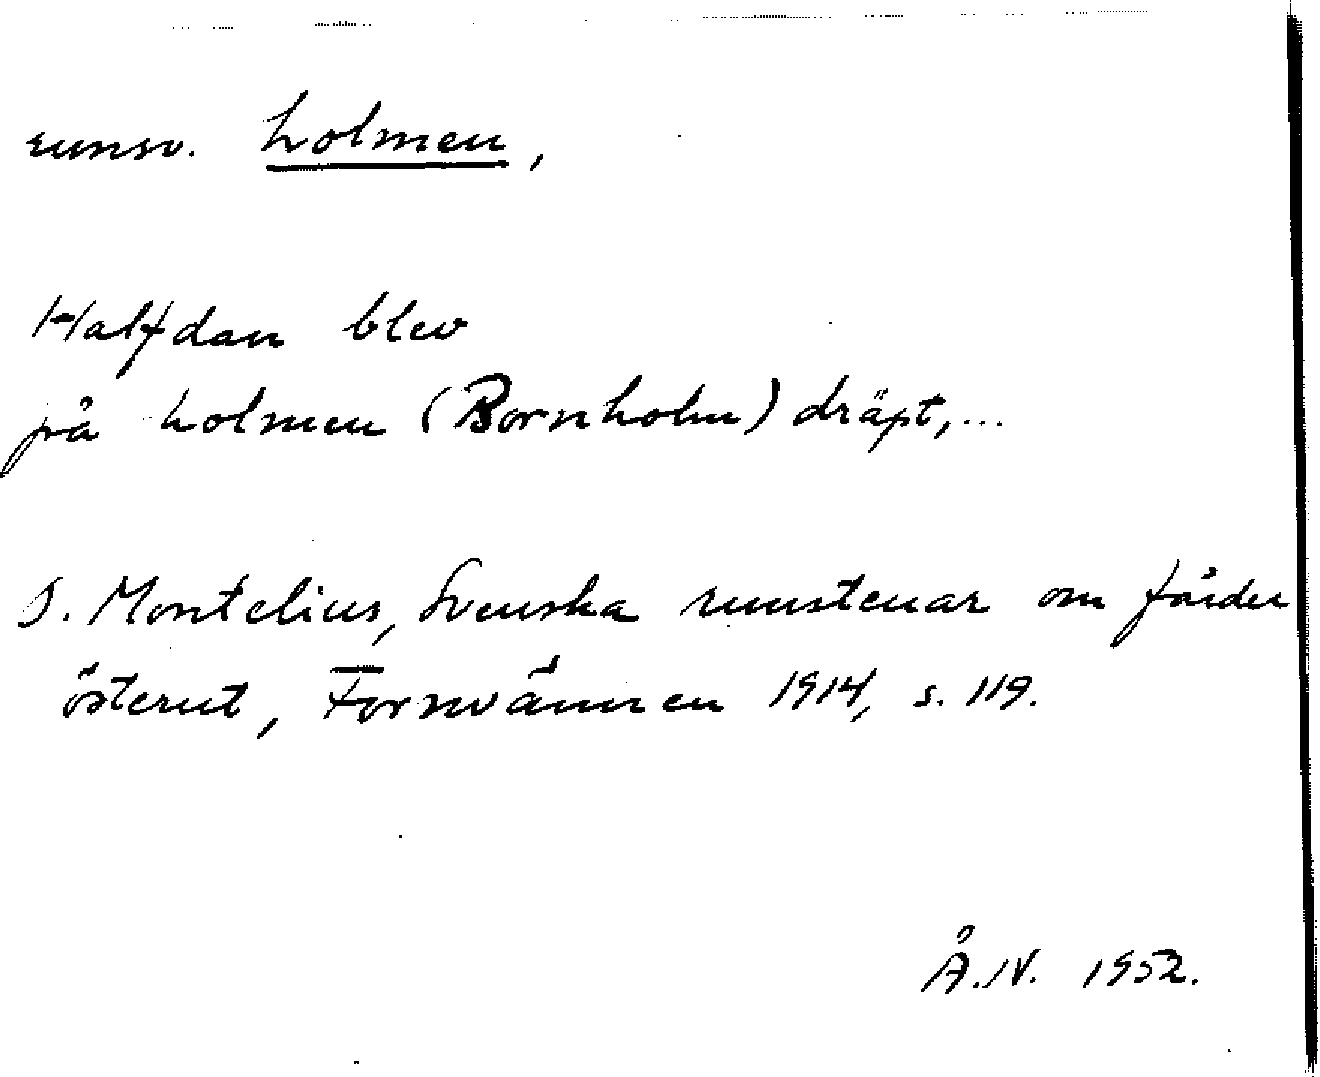 runsv. holmen,
Halfdan blev
på holmen (Bornholm) dräpt,...
O. Montelius, Svenska runstenar om färder
österut, Fornvännen 1914, s. 119.
Å.N. 1952.